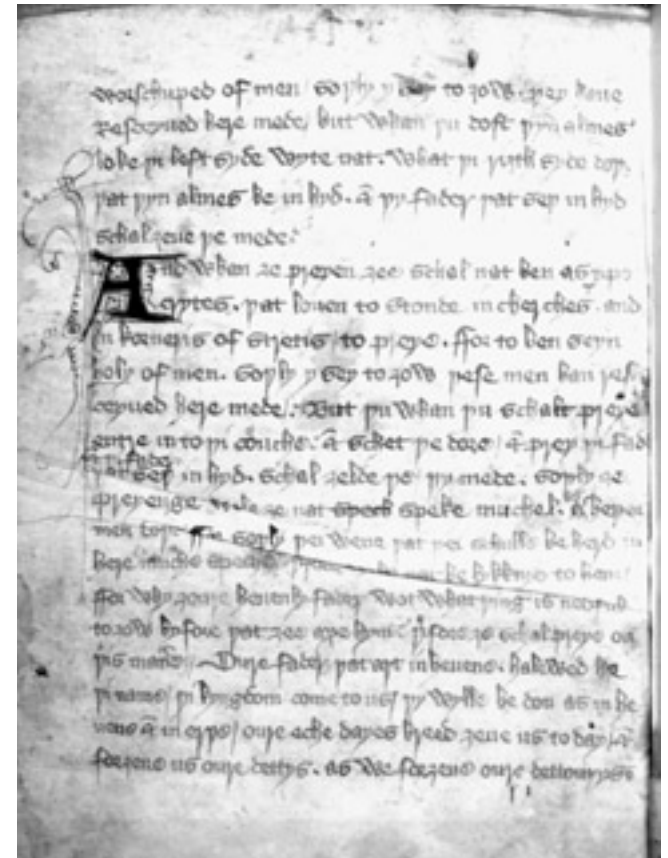 worschuped of men / soþly y sey to ȝow . þey haue
resceyued here mede / but whan þu dost þyn almes
loke þi left syde wyte nat . what þi ryth syde doþ
þat þyn almes be in hyd . & þy fader þat seþ in hyd
schal ȝeue þe mede .
And whan ȝe preyen ȝee schal nat ben as ypo
crytes . þat louen to stonde in cherches . and
in korneris of stretis / to preye . ffor to ben seyn
holy of men . soþly y sey to ȝow þese men han res
ceyued here mede / But þu whan þu schalt preye
entre into þi couche . & schet þe dore / & prey þi fad
þi fader
þat seþ in hyd . schal ȝelde þe þy mede . soþly ȝe
preyenge ȝe nat spech speke muchel . as heþen
men soþly þei wene þat þei schulle be herd in
here muche speche be lykkned to hem /
ffor why ȝoure heuenly fader wot what þing is
to ȝow byfore þat ȝee ȝe schal preye on
þis maner Oure fader þat art in heuene . halewed be
þi name / þi kyngdom come to us / þy wylle be don as in he
uene & in erþe / oure eche dayes breed ȝeue us to day / &
forȝeue us oure dettys . as we forȝeue oure dettourys